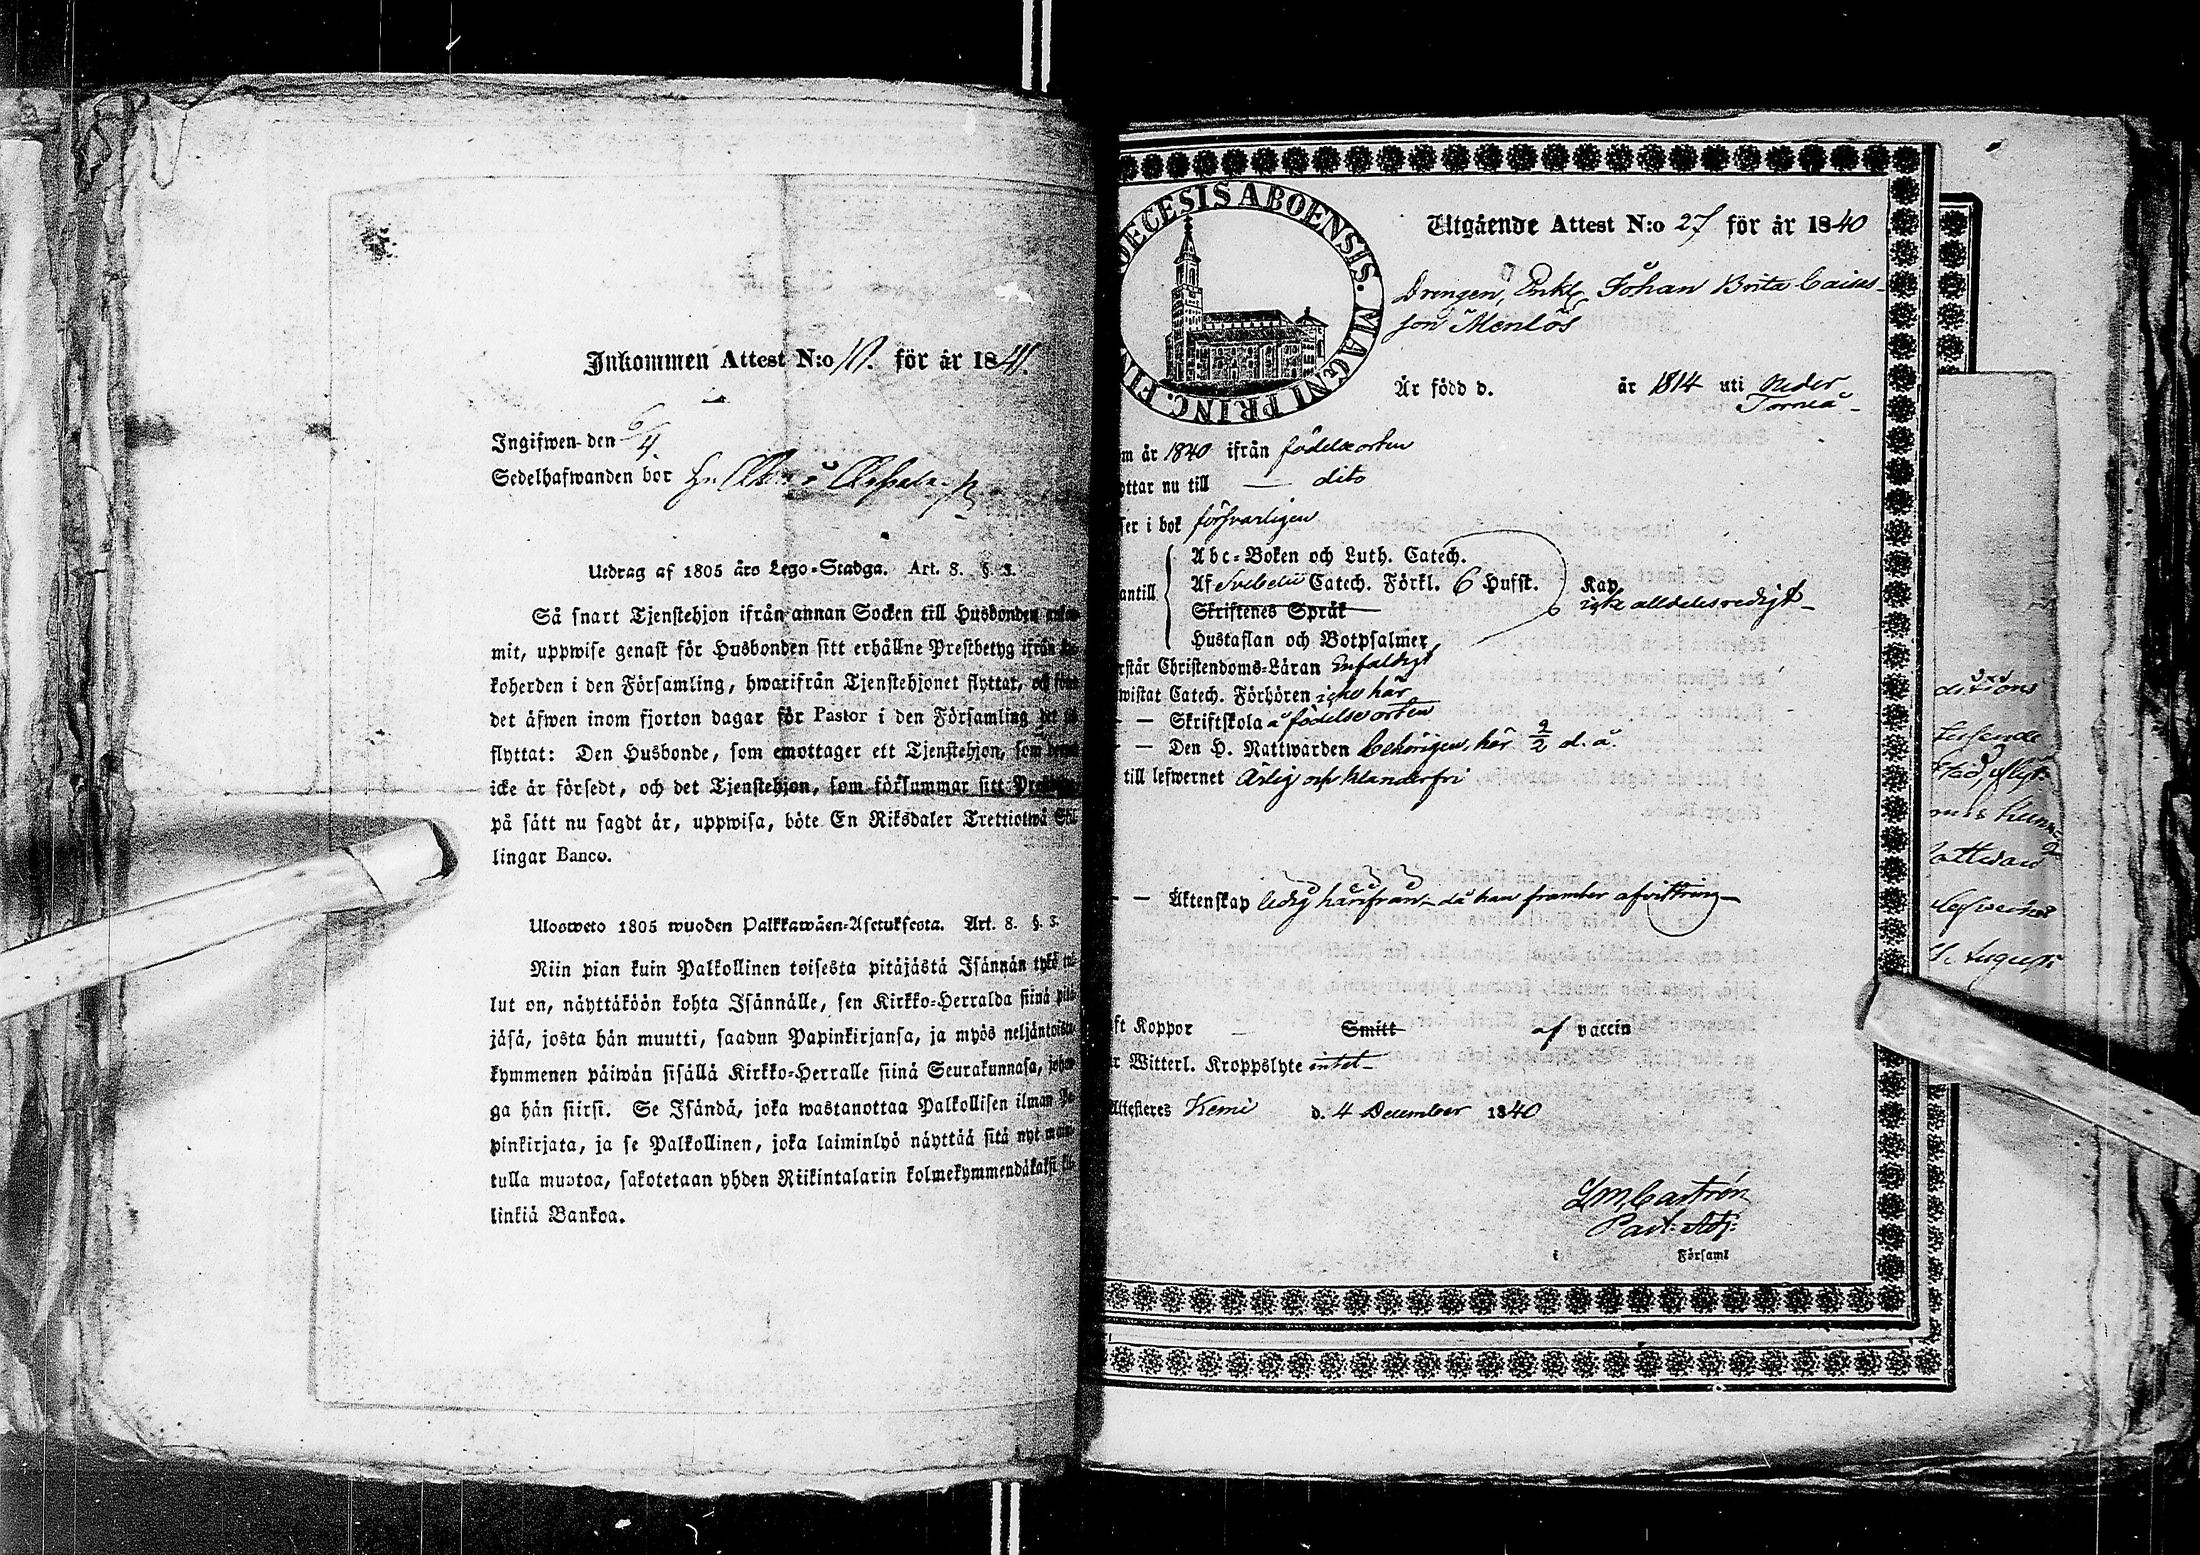 Inkommen Attest N:o 10. för år 1841.
Ingifwen den 6/4.
Sedelhafwanden bor
Utdrag af 1805 års Lego-Stadga. Art. 8. §. 3.
Så snart Tjenstehjon ifrån annan Socken till Husbonden
mit, uppwise genast för Husbonden sitt erhållne Prestbetyg ifrån
koherden i den Församling, hwarifrån Tjenstehjonet flyttat, och
det äfwen inom fjorton dagar för Pastor i den Församling det
flyttat: Den Husbonde, som emottager ett Tjenstehjon, som
icke är försedt, och det Tjenstehjon, som förlummar sitt
på sätt nu sagdt är, uppwisa, böte En Riksdaler Trettiotwå Skil
lingar Banco.
Ulosweto 1805 wuoden Palkkawäen-Asetuksesta. Art. 8. §. 3.
Niin pian kuin Palkollinen toisesta pitäjästä Isännän tykö
lut on, näyttäköön kohta Isännälle, sen Kirkko-Herralda siinä pitä
jäsä, josta hän muutti, saadun Papinkirjansa, ja myös neljäntoista
kymmenen päiwän sisällä Kirkko-Herralle siinä Seurakunnasa, johon
ga hän siirsi. Se Isändä, joka wastanottaa Palkollisen ilman Pa
pinkirjata, ja se Palkollinen, joka laiminlyö näyttää sitä nyt
tulla muotoa, sakotetaan yhden Riikintalarin kolmekymmendäkaksi
linkiä Bankoa.
DECESIS ABOENSIS. MAGNI PRINC. FIN
Utgående Attest N:o 27 för år 1840
Drengen, Enkl. Johan Brita Caisas-
son Menlös
Är född d. år 1814 uti Neder
Torneå
m år 1840 ifrån födelseorten
ottar nu till — dito
ser i bok försvarligen
Abc-Boken och Luth. Catech.
antill Af Svebelii Catech. Förkl. 6 Hufst. Kap
icke alldeles redigt
Skriftenes Språk
Hustaflan och Botpsalmer
rstår Christendoms-Läran Enfaldigt
wistat Catech. Förhören icke här
— — Skriftskola å födelseorten
— Den H. Nattwarden behörigen, här 2/2 d. å.
till lefwernet Ärlig och klanderfri
— — Äktenskap ledig härifrån, då han framter afvittring
ft Koppor — Smitt af vaccin
r Witterl. Kroppslyte intet
Attesteres Kemi d. 4 December 1840
L M Castrén
Past. Adj.
i Församl
ditions
August